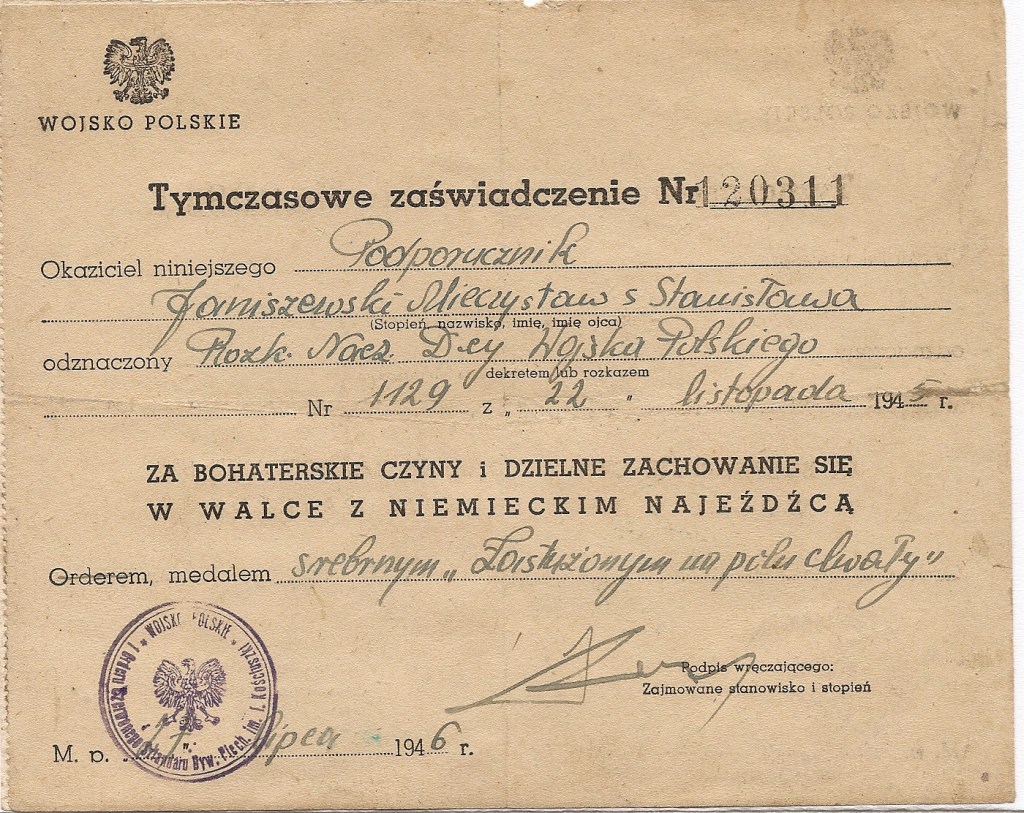 WOJSKO POLSKIE
Tymczasowe zaświadczenie Nr 120311
Okaziciel niniejszego Podporucznik
Janiszewski Mieczysław s Stanisława
(Stopień, nazwisko, imię, imię ojca)
odznaczony Rozk. Nacz. D-cy Wojska Polskiego
dekretem lub rozkazem
Nr 1129 z „ 22 " listopada 1945 r.
ZA BOHATERSKIE CZYNY i DZIELNE ZACHOWANIE SIĘ
W WALCE Z NIEMIECKIM NAJEŹDŹCĄ
Orderem, medalem srebrnym „Zasłużonym na polu chwały"
Podpis wręczającego:
Zajmowane stanowisko i stopień
WOJSKO POLSKIE
Piech. im. T. Kościuszki
M. p. 17 lipca 1946 r.